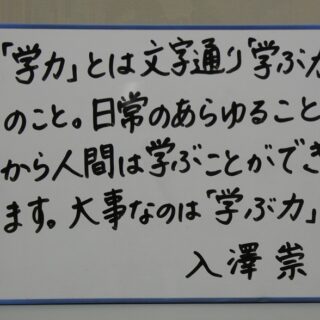 「学力」とは文字通り「学ぶ力
のこと。日常のあらゆること
から人間は学ぶことができ
ます。大事なのは「学ぶ力」
入澤崇